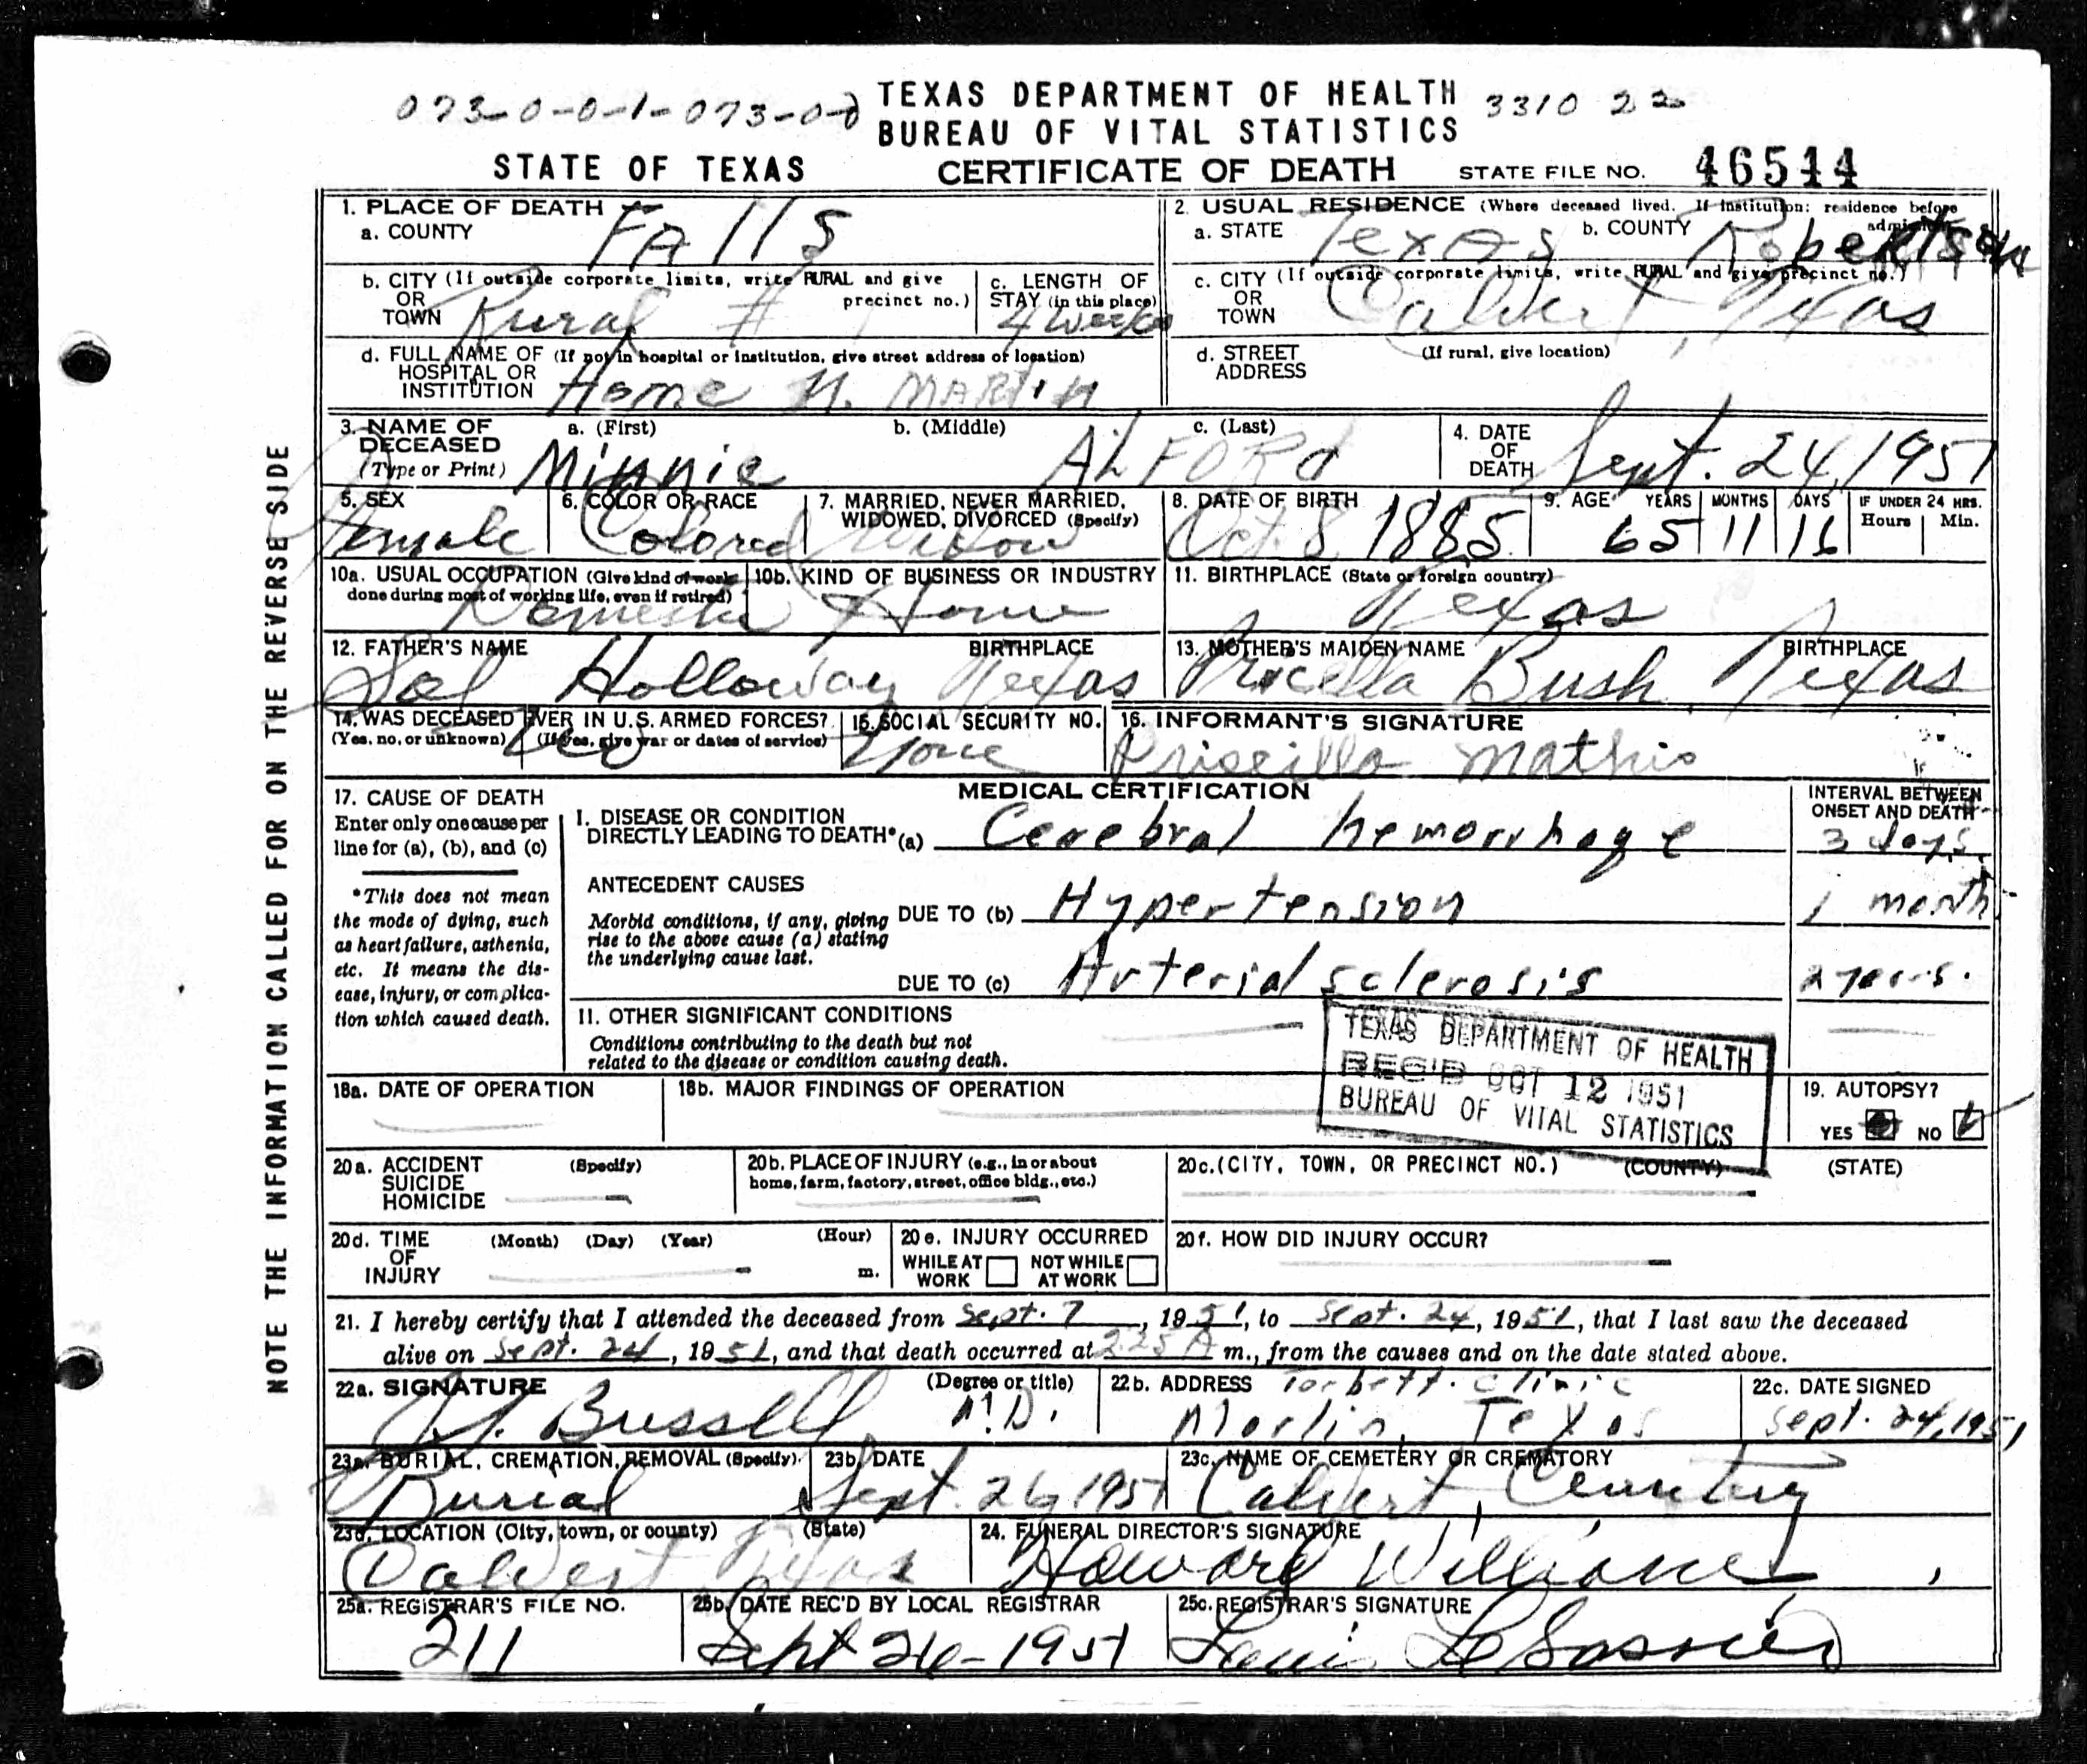 073-0-0-1-073-0-0 TEXAS DEPARTMENT OF HEALTH 3310 22
BUREAU OF VITAL STATISTICS
STATE OF TEXAS CERTIFICATE OF DEATH STATE FILE NO. 46544
NOTE THE INFORMATION CALLED FOR ON THE REVERSE SIDE
1. PLACE OF DEATH
a. COUNTY Falls
2. USUAL RESIDENCE (Where deceased lived. If institution: residence before admission)
a. STATE Texas b. COUNTY Robertson
b. CITY (If outside corporate limits, write RURAL and give precinct no.)
OR
TOWN Rural # 1
c. LENGTH OF
STAY (in this place)
4 weeks
c. CITY (If outside corporate limits, write RURAL and give precinct no.)
OR
TOWN Calvert, Texas
d. FULL NAME OF (If not in hospital or institution, give street address or location)
HOSPITAL OR
INSTITUTION Home N. MARTIN
d. STREET (If rural, give location)
ADDRESS
3. NAME OF a. (First) b. (Middle) c. (Last)
DECEASED
(Type or Print) Minnie ALFORd
4. DATE
OF
DEATH Sept. 24, 1951
5. SEX
Female
6. COLOR OR RACE
Colored
7. MARRIED, NEVER MARRIED,
WIDOWED, DIVORCED (Specify)
Widow
8. DATE OF BIRTH
Oct. 8, 1885
9. AGE YEARS MONTHS DAYS IF UNDER 24 HRS.
Hours Min.
65 11 16
10a. USUAL OCCUPATION (Give kind of work
done during most of working life, even if retired)
Domestic
10b. KIND OF BUSINESS OR INDUSTRY
Home
11. BIRTHPLACE (State or foreign country)
Texas
12. FATHER'S NAME BIRTHPLACE
Sol Holloway Texas
13. MOTHER'S MAIDEN NAME BIRTHPLACE
Pricella Bush, Texas
14. WAS DECEASED EVER IN U.S. ARMED FORCES?
(Yes, no, or unknown) (If yes, give war or dates of service)
No
15. SOCIAL SECURITY NO.
None
16. INFORMANT'S SIGNATURE
Priscilla Mathis
17. CAUSE OF DEATH
Enter only one cause per
line for (a), (b), and (c)
*This does not mean
the mode of dying, such
as heart failure, asthenia,
etc. It means the dis-
ease, injury, or complica-
tion which caused death.
MEDICAL CERTIFICATION
INTERVAL BETWEEN
ONSET AND DEATH
I. DISEASE OR CONDITION
DIRECTLY LEADING TO DEATH* (a) Cerebral hemorrhage 3 days.
ANTECEDENT CAUSES
Morbid conditions, if any, giving
rise to the above cause (a) stating
the underlying cause last.
DUE TO (b) Hypertension 1 month
DUE TO (c) Arterial sclerosis 2 years.
II. OTHER SIGNIFICANT CONDITIONS
Conditions contributing to the death but not
related to the disease or condition causing death.
TEXAS DEPARTMENT OF HEALTH
REC'D OCT 12 1951
BUREAU OF VITAL STATISTICS
18a. DATE OF OPERATION
18b. MAJOR FINDINGS OF OPERATION
19. AUTOPSY?
YES NO
20a. ACCIDENT (Specify)
SUICIDE
HOMICIDE
20b. PLACE OF INJURY (e.g., in or about
home, farm, factory, street, office bldg., etc.)
20c. (CITY, TOWN, OR PRECINCT NO.) (COUNTY) (STATE)
20d. TIME (Month) (Day) (Year) (Hour)
OF
INJURY m.
20e. INJURY OCCURRED
WHILE AT WORK NOT WHILE AT WORK
20f. HOW DID INJURY OCCUR?
21. I hereby certify that I attended the deceased from Sept. 7, 1951, to Sept. 24, 1951, that I last saw the deceased
alive on Sept. 24, 1951, and that death occurred at 2:25 A m., from the causes and on the date stated above.
22a. SIGNATURE (Degree or title)
Bussell M.D.
22b. ADDRESS Torbett Clinic
Marlin, Texas
22c. DATE SIGNED
Sept. 24, 1951
23a. BURIAL, CREMATION, REMOVAL (Specify)
Burial
23b. DATE
Sept. 26, 1951
23c. NAME OF CEMETERY OR CREMATORY
Calvert, Cemetery
23d. LOCATION (City, town, or county) (State)
Calvert Texas
24. FUNERAL DIRECTOR'S SIGNATURE
Howard Williams
25a. REGISTRAR'S FILE NO.
211
25b. DATE REC'D BY LOCAL REGISTRAR
Sept 26-1951
25c. REGISTRAR'S SIGNATURE